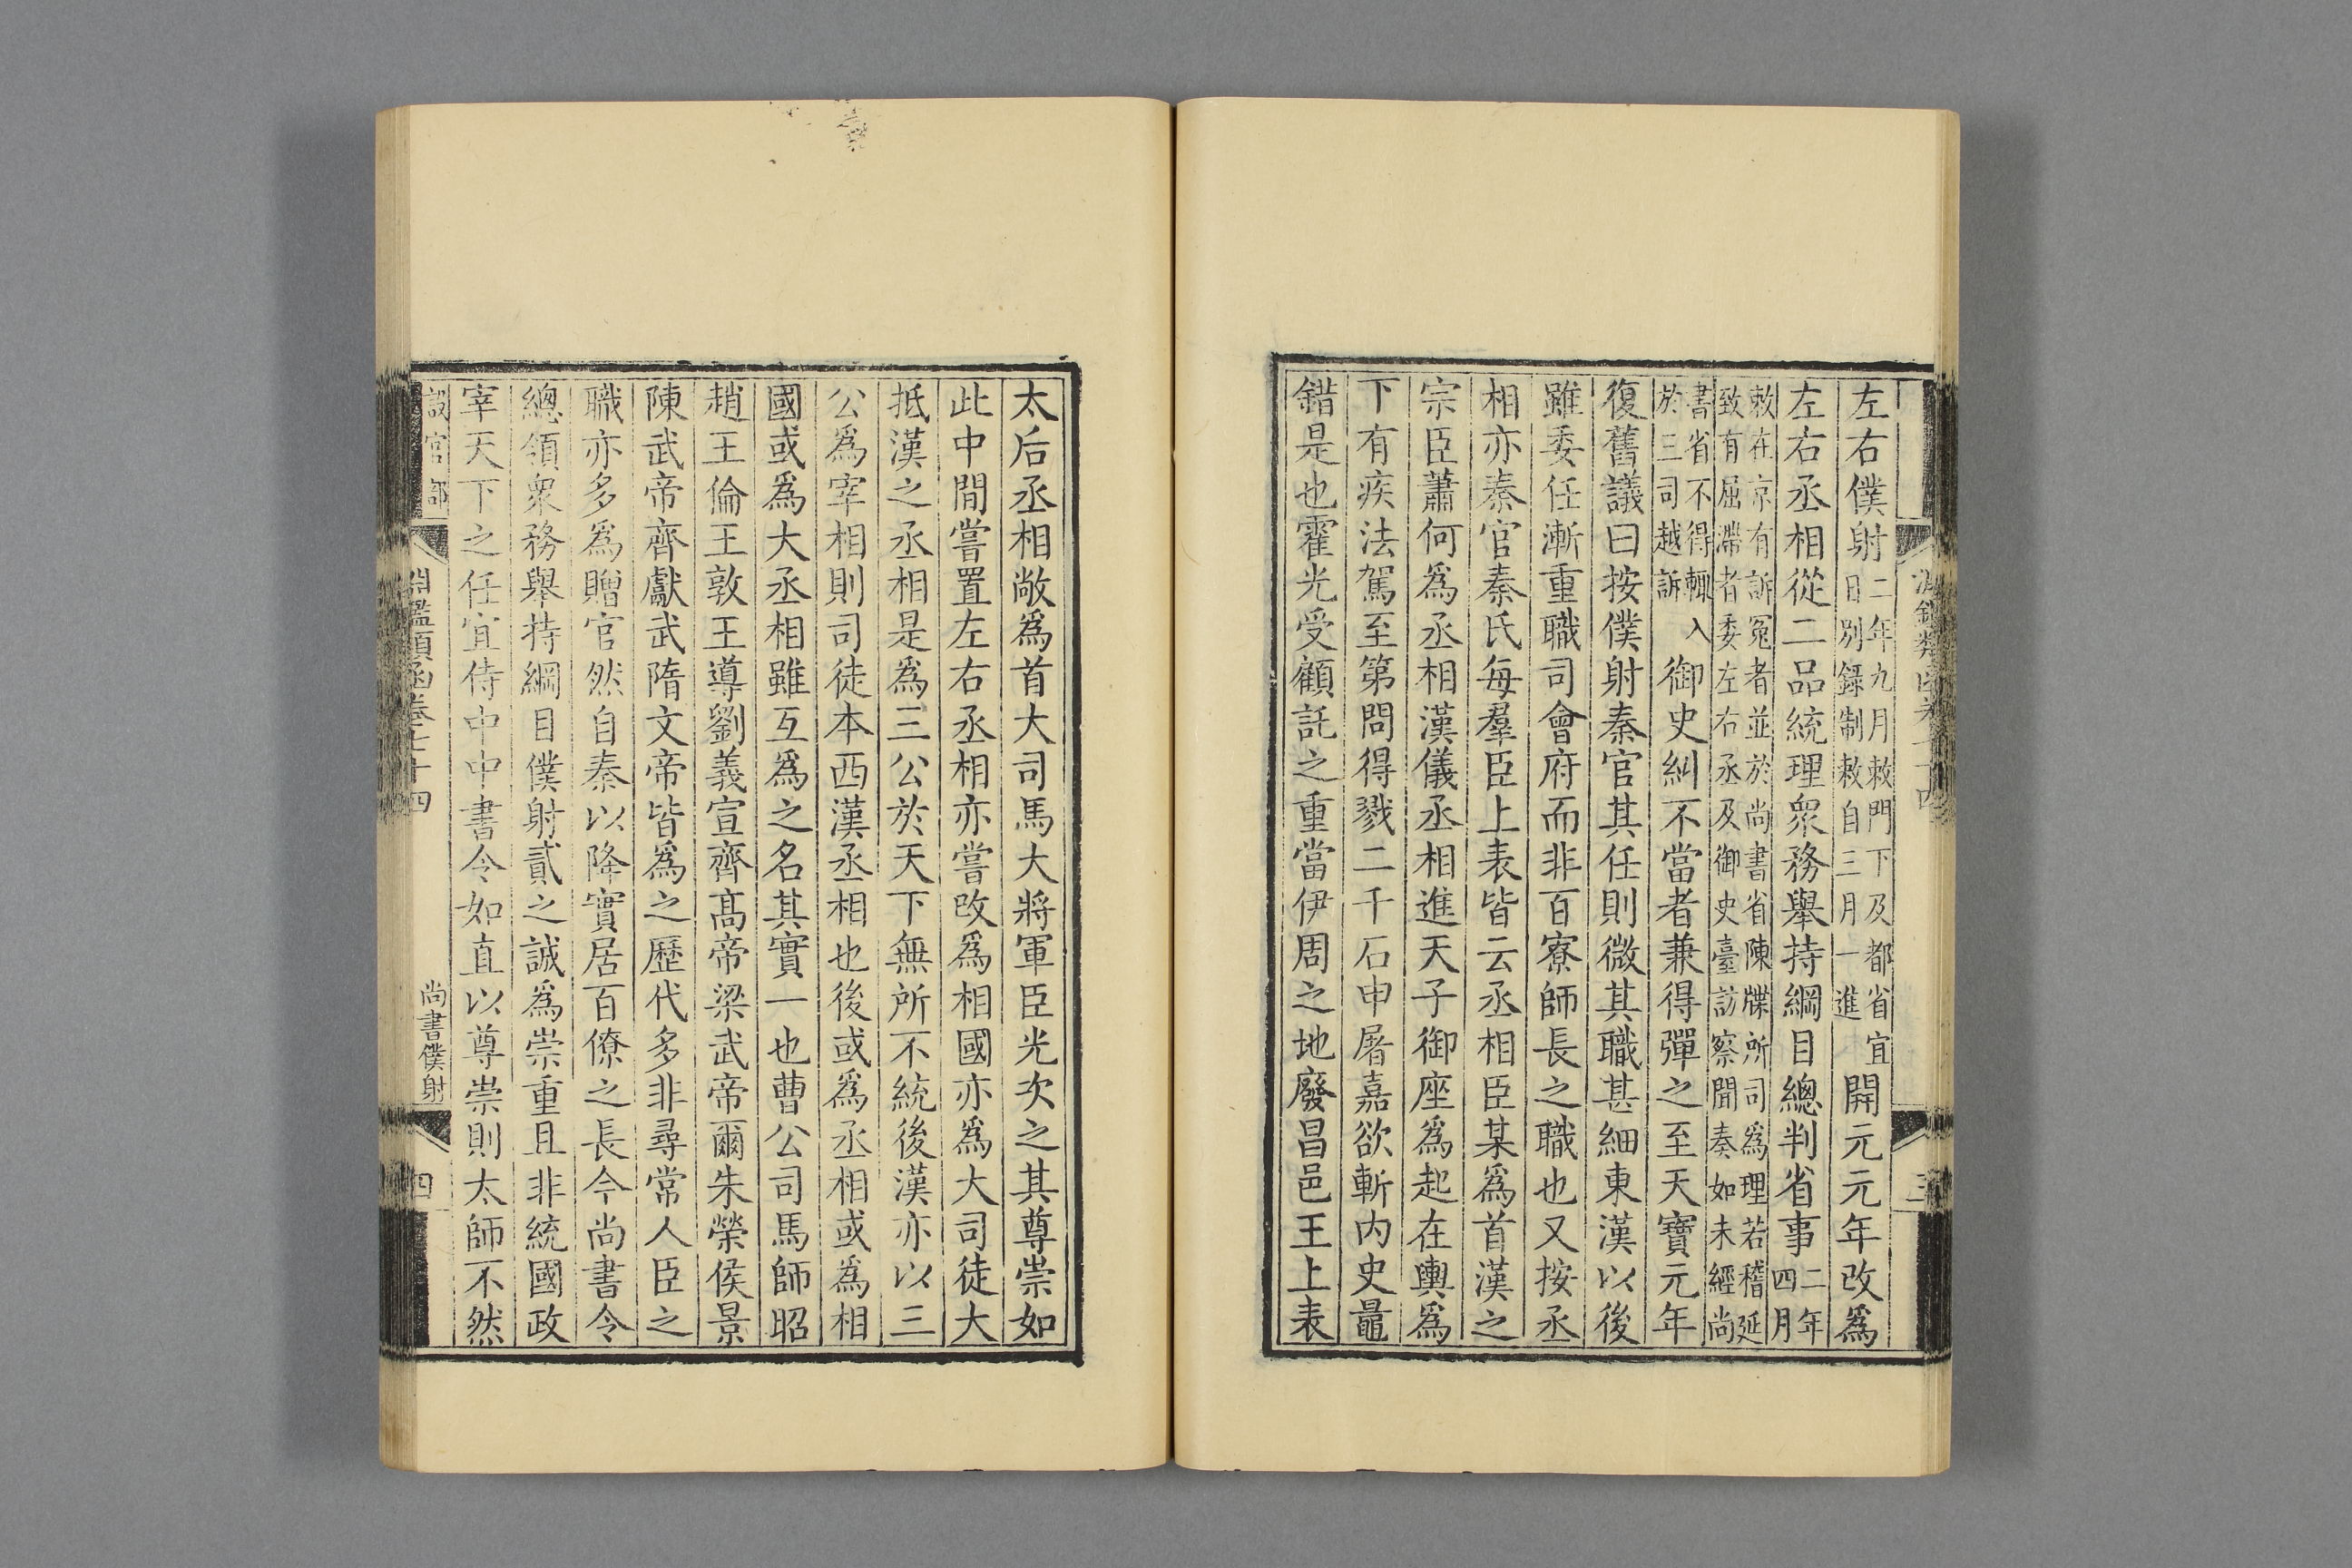 左右僕射二年九月敕門下及都省宜日別錄制敕自三月一進開元元年改爲
左右丞相從二品統理衆務舉持綱目總判省事二年四月
敕在京有訴冤者並於尚書省陳牒所司爲理若稽延致有屈滯者委左右丞及御史臺訪察聞奏如未經尚
書省不得輒入於三司越訴御史糾不當者兼得彈之至天寶元年
復舊議曰按僕射秦官其任則微其職甚細東漢以後
雖委任漸重職司會府而非百寮師長之職也又按丞
相亦秦官秦氏每羣臣上表皆云丞相臣某爲首漢之
宗臣蕭何爲丞相漢儀丞相進天子御座爲起在輿爲
下有疾法駕至第問得戮二千石申屠嘉欲斬內史鼂
錯是也霍光受顧託之重當伊周之地廢昌邑王上表
太后丞相敞爲首大司馬大將軍臣光次之其尊崇如
此中間嘗置左右丞相亦嘗改爲相國亦爲大司徒大
抵漢之丞相是爲三公於天下無所不統後漢亦以三
公爲宰相則司徒本西漢丞相也後或爲丞相或爲相
國或爲大丞相雖互爲之名其實一也曹公司馬師昭
趙王倫王敦王導劉義宣齊高帝梁武帝爾朱榮侯景
陳武帝齊獻武隋文帝皆爲之歷代多非尋常人臣之
職亦多爲贈官然自秦以降實居百僚之長今尚書令
總領衆務舉持綱目僕射貳之誠爲崇重且非統國政
宰天下之任宜侍中中書令如直以尊崇則太師不然
設官部
淵鑑類函卷七十四
尚書僕射
四